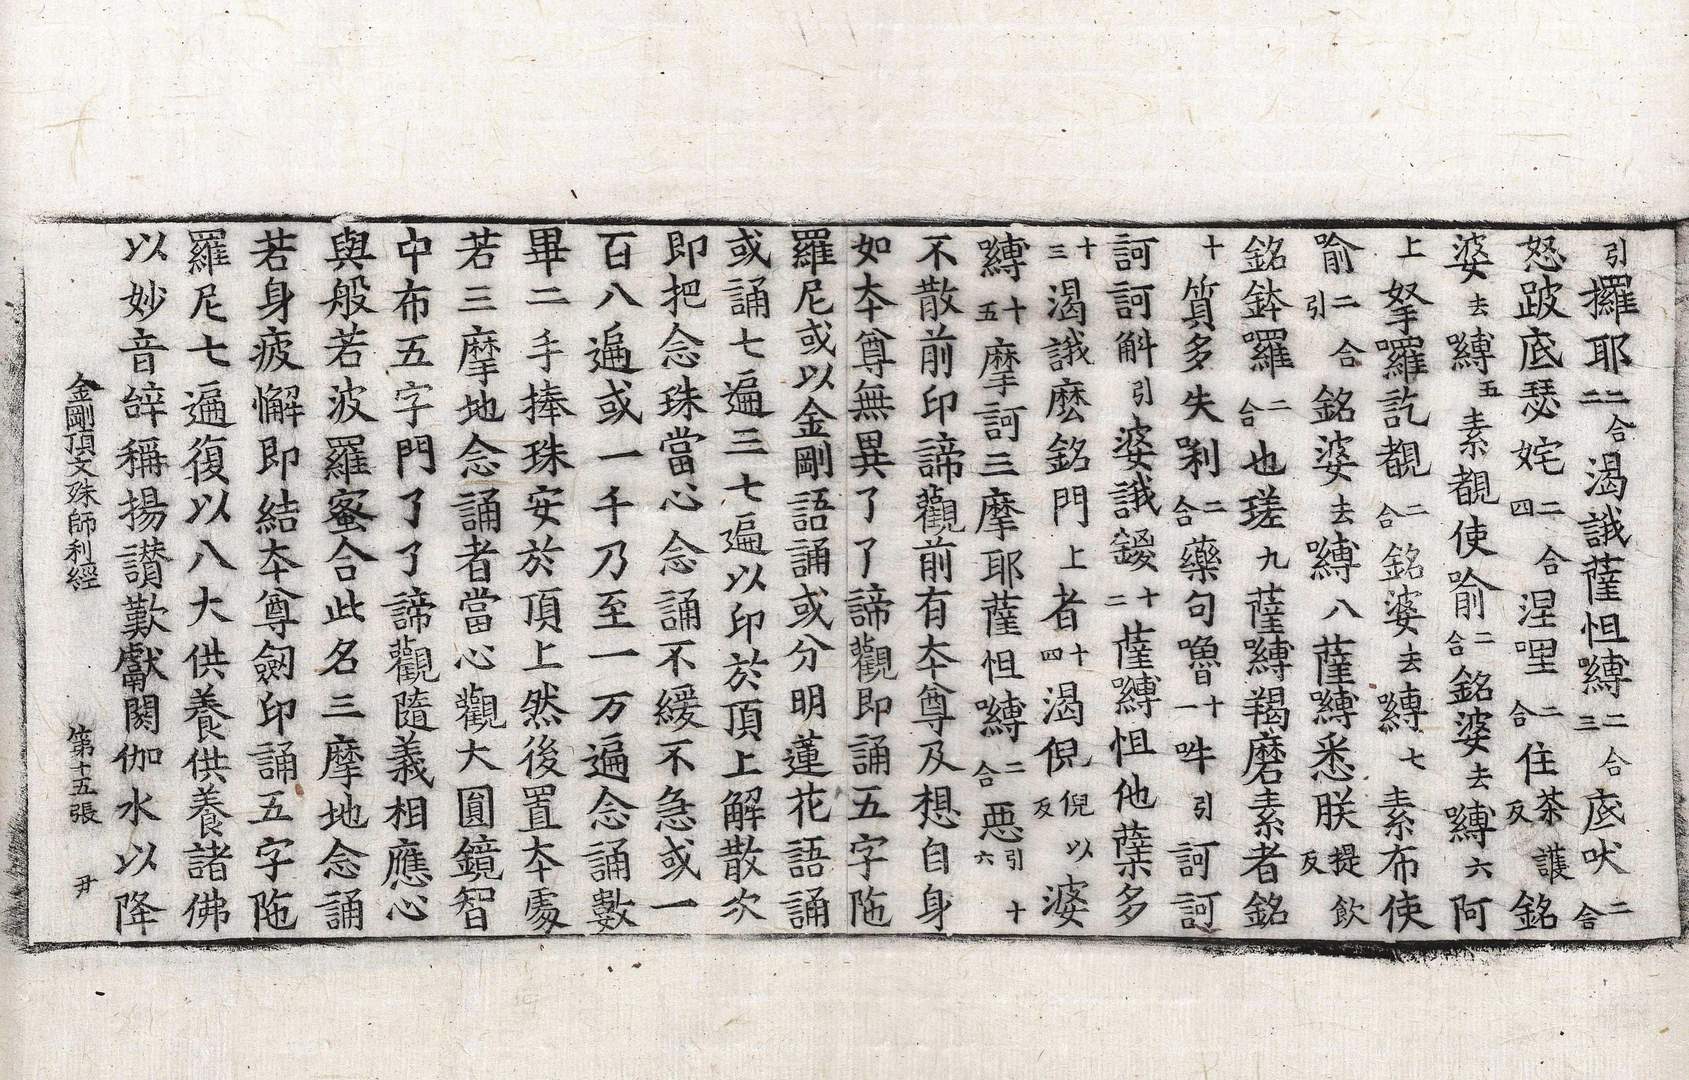 引攞耶二合二渴誐薩怛嚩二合三底吠二合
怒跛底瑟姹二合四涅哩二合住茶護反銘
婆去嚩五素覩使喻二合銘婆去嚩六阿
上拏囉訖覩二合銘婆去嚩七素布使
喻二合引銘婆去嚩八薩嚩悉朕提飲反
銘鉢羅二合也瑳九薩嚩羯磨素者銘
十質多失唎二合藥句嚕十一吽引訶訶
訶訶斛引婆誐鑁十二薩嚩怛他蘖多
十三渴誐麽銘門上者十四渴倪倪以反婆
嚩十五摩訶三摩耶薩怛嚩二合惡引十六
不散前印諦觀前有夲尊及想自身
如夲尊無異了了諦觀即誦五字陁
羅尼或以金剛語誦或分明蓮花語誦
或誦七遍三七遍以印於頂上解散次
即把念珠當心念誦不緩不急或一
百八遍或一千乃至一万遍念誦數
畢二手捧珠安於頂上然後置夲處
若三摩地念誦者當心觀大圓鏡智
中布五字門了了諦觀隨義相應心
與般若波羅蜜合此名三摩地念誦
若身疲懈即結夲尊劒印誦五字陁
羅尼七遍復以八大供養供養諸佛
以妙音辝稱揚讃歎獻閼伽水以降
金剛頂文殊師利經　第十五張　尹